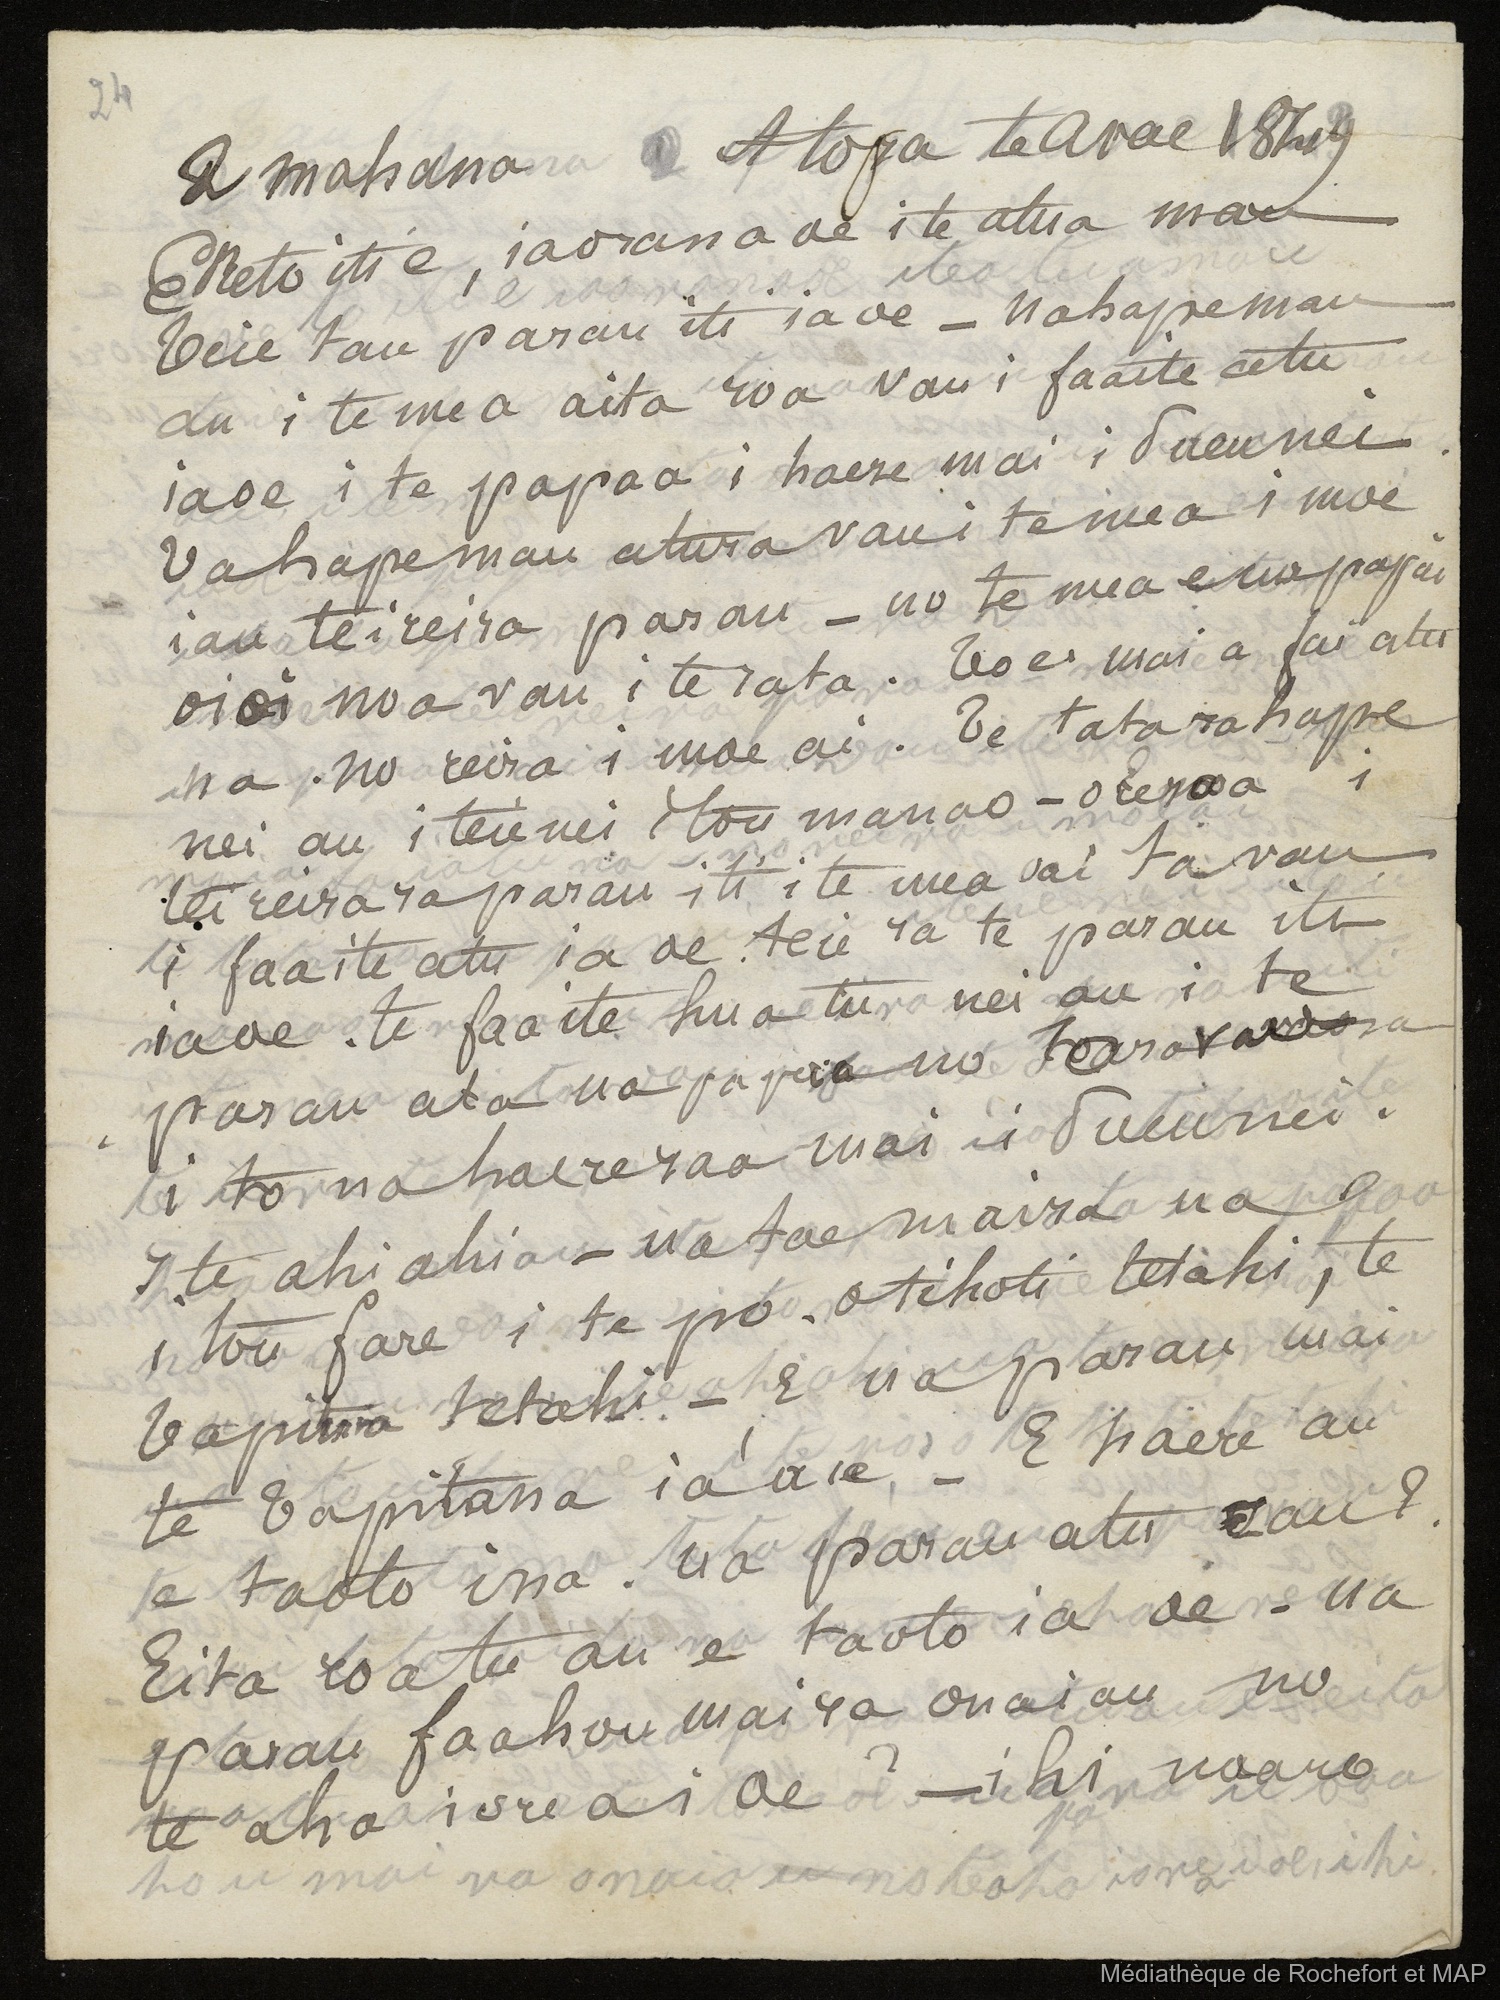 24
2 mahana Atopa te Avae 1879
E Reto iti e, iaorana oe i te atua mau
Teie tau parau iti iaoe _ uahapemau
au i te mea aita roa vau i faaite atu
iaoe i te papaa i haere mai i Dueunei.
Uahapemau atura vau i te mea i moe
iau teireira parau _ no te mea papai
oioi noa vau i te rata. mai a fai atu
na. no reira i moe ai. Te tatarahape
nei au i teienei i tou manao _ i
teireira ra parau iti i te mea vai ta vau
i faaite atu ia oe. teie ra te parau iti
iaoe. te faaite hua tu nei au i te
parau ata na no Taravao
i to na haereraa mai i Dueunei.
I te ahiahi _ ua tae maira ua
i tou fare i te po. otihoti tetahi, te
Tapitana tetahi. _ E ua parau mai
te Tapitana ia'u ie. _ E haere au
e taoto ina. ua parau atu vau?
Eita roatu au e taoto ia oe _ ua
parau faahou maira onaiau no
te aha iore ai oe? _ ihi noaro
hou mai ra onaiau no te aha iore ai oe, ihi
Médiathèque de Rochefort et MAP